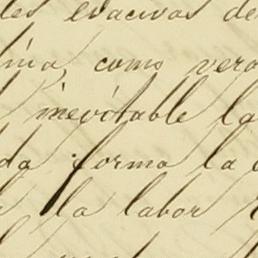 les evacivos de
nia, como vera
inevitable la
da forma la
la labor